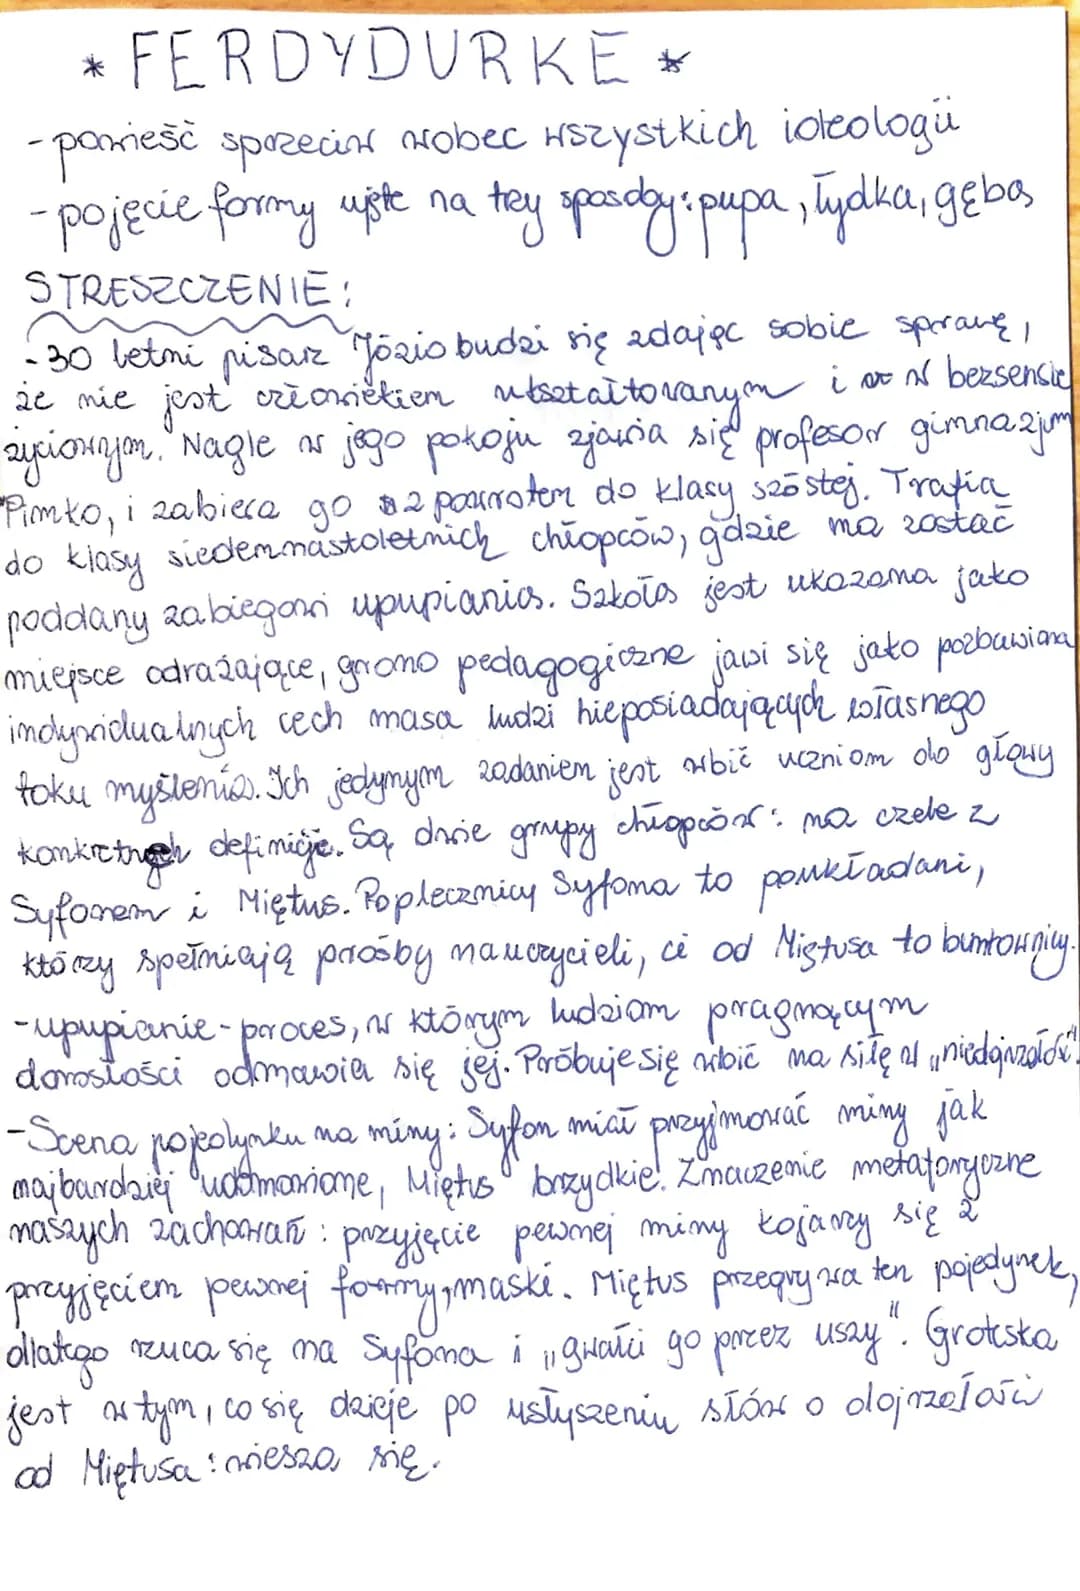 * FERDYDURKE *
- powieść sprzeciw wobec wszystkich ideologii
- pojęcie formy ujęte na trzy sposoby: pupa, łydka, gęba
STRESZCZENIE:
- 30 letni pisarz Józio budzi się zdając sobie sprawę,
że nie jest człowiekiem ukształtowanym i w bezsensie
życiowym. Nagle w jego pokoju zjawia się profesor gimnazjum
Pimko, i zabiera go z powrotem do klasy szóstej. Trafia
do klasy siedemnastoletnich chłopców, gdzie ma zostać
poddany zabiegowi upupiania. Szkoła jest ukazana jako
miejsce odrażające, grono pedagogiczne jawi się jako pozbawiona
indywidualnych cech masa ludzi nieposiadających własnego
toku myślenia. Ich jedynym zadaniem jest wbić uczniom do głowy
konkretnych definicje. Są dwie grupy chłopców: na czele z
Syfonem i Miętus. Poplecznicy Syfona to poukładani,
którzy spełniają prośby nauczycieli, ci od Miętusa to buntownicy.
- upupianie - proces, w którym ludziom pragnącym
dorosłości odmawia się jej. Próbuje się wbić na siłę w „niedojrzałość".
- Scena pojedynku na miny: Syfon miał przyjmować miny jak
najbardziej udomowione, Miętus brzydkie. Znaczenie metaforyczne
naszych zachowań: przyjęcie pewnej miny kojarzy się z
przyjęciem pewnej formy, maski. Miętus przegrywa ten pojedynek,
dlatego rzuca się na Syfona i „gwałci go przez uszy". Groteska
jest w tym, co się dzieje po usłyszeniu słów o dojrzałości
od Miętusa: wiesza się.